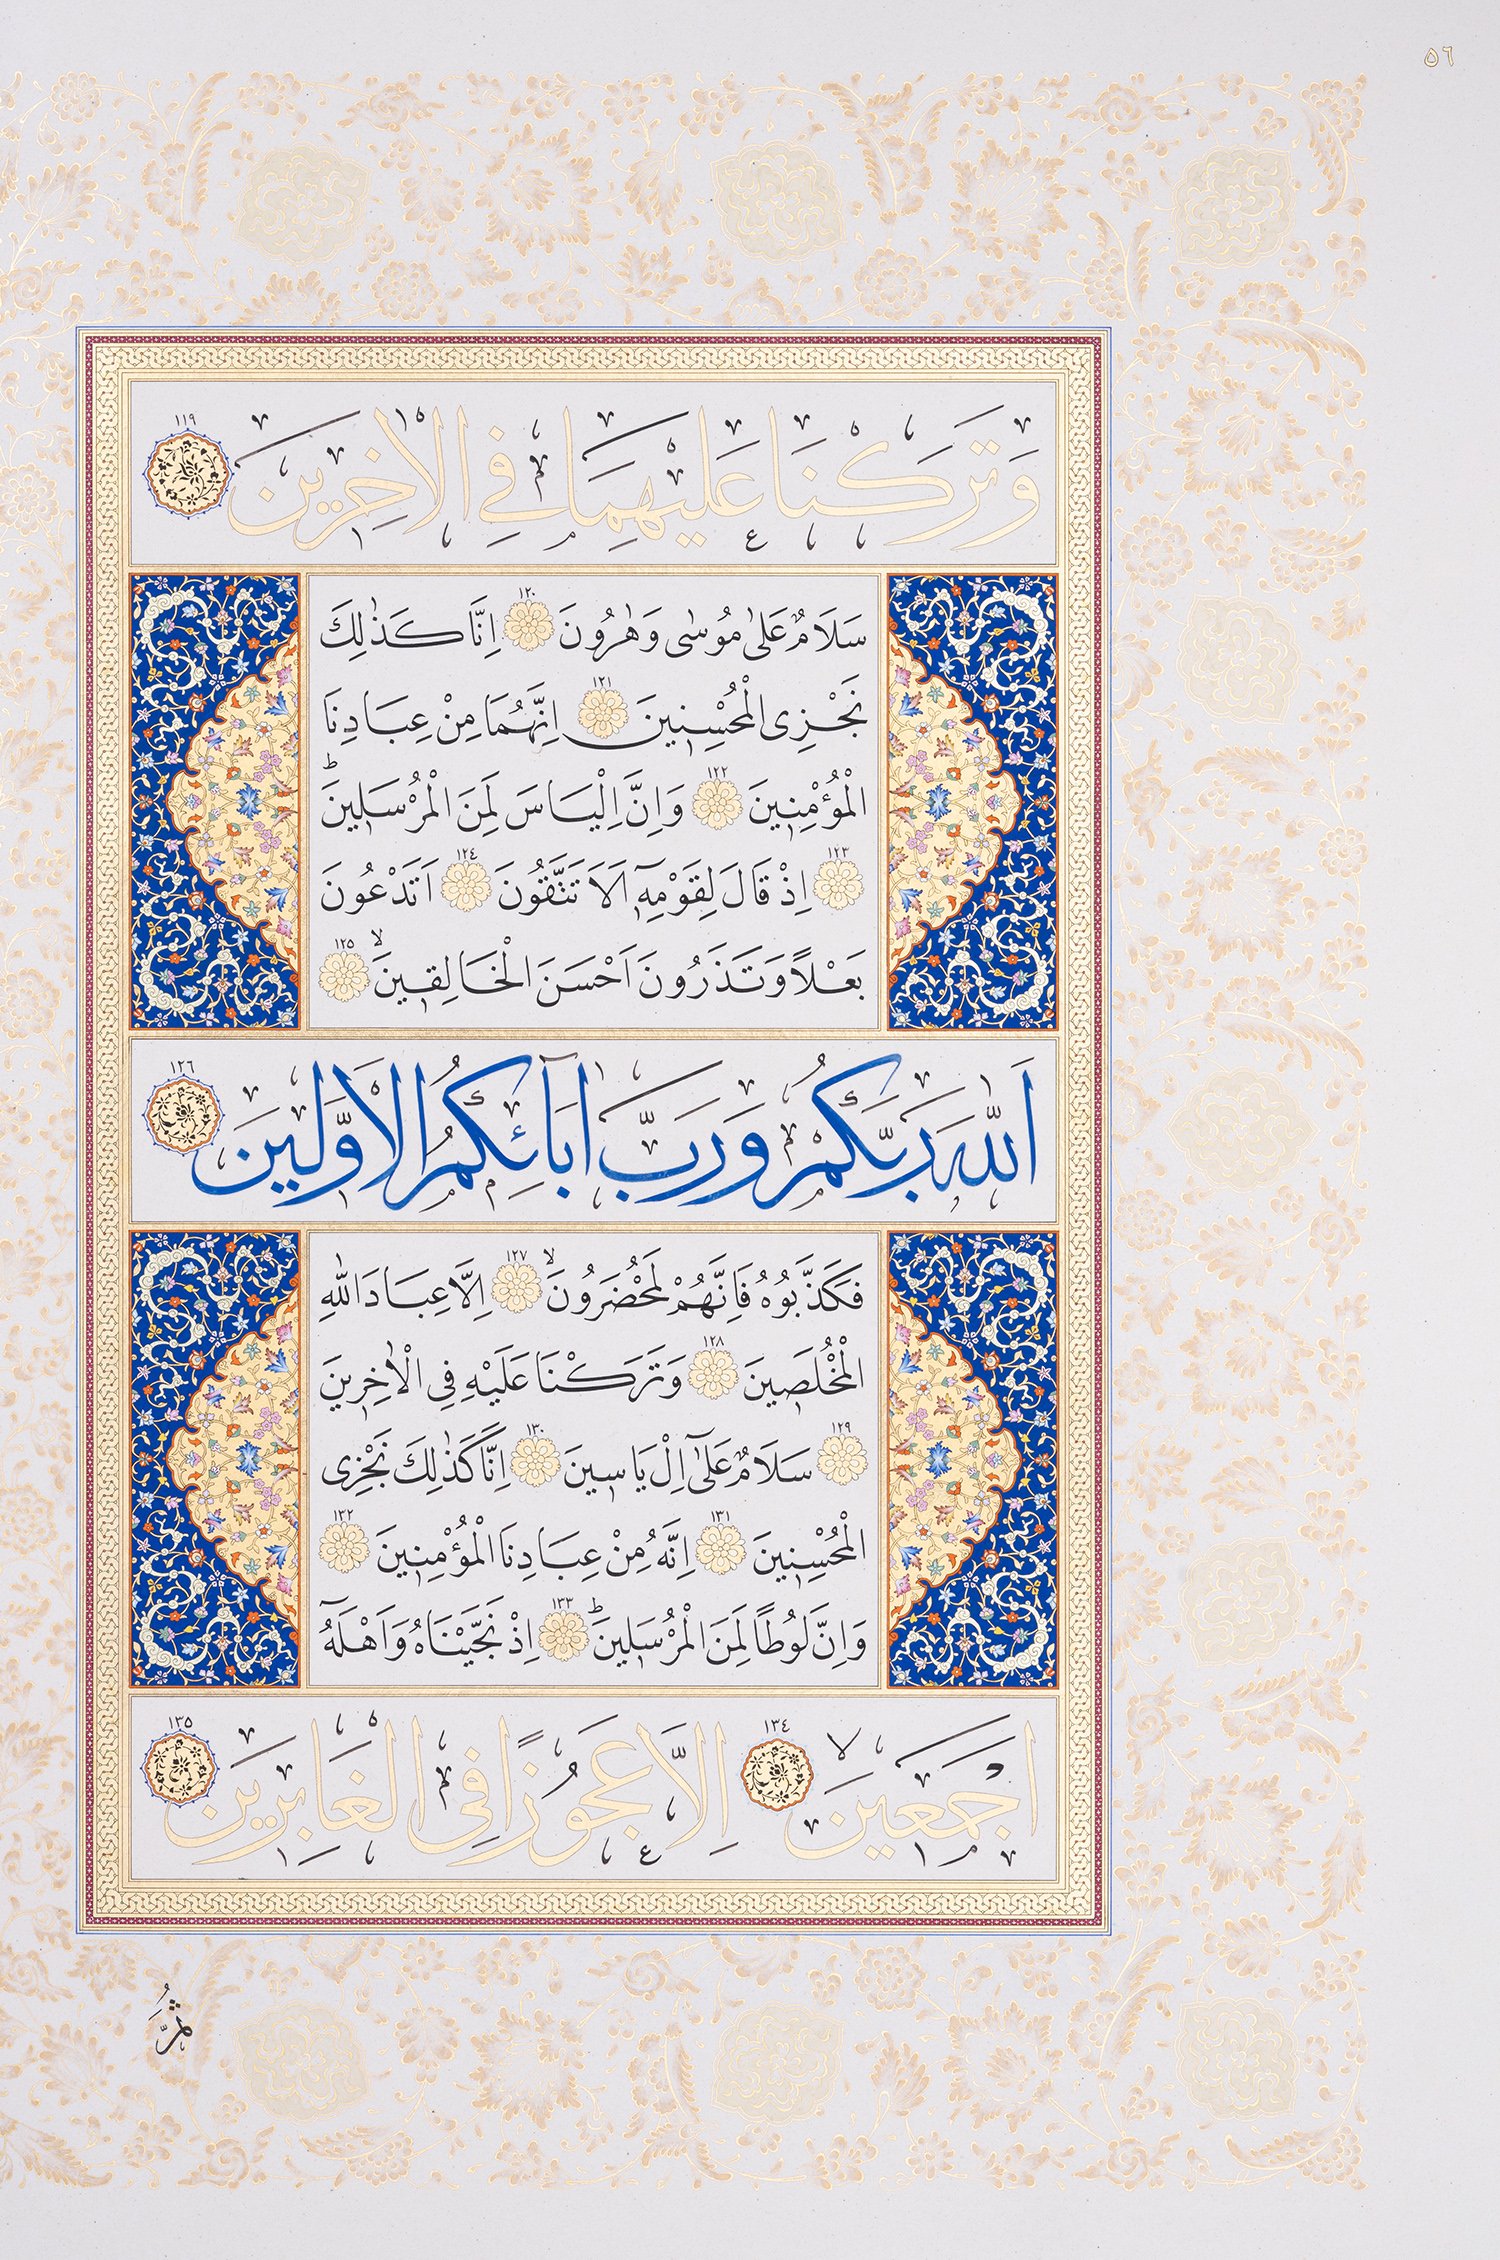 ٥٦
وَتَرَكْنَا عَلَيْهِمَا فِي الْاٰخِرِينَ ١١٩
سَلَامٌ عَلٰى مُوسٰى وَهٰرُونَ ١٢٠ اِنَّا كَذٰلِكَ
نَجْزِى الْمُحْسِنِينَ ١٢١ اِنَّهُمَا مِنْ عِبَادِنَا
الْمُؤْمِنِينَ ١٢٢ وَاِنَّ اِلْيَاسَ لَمِنَ الْمُرْسَلِينَ ؕ
١٢٣ اِذْ قَالَ لِقَوْمِهٖٓ اَلَا تَتَّقُونَ ١٢٤ اَتَدْعُونَ
بَعْلًا وَتَذَرُونَ اَحْسَنَ الْخَالِقِينَ ۙ ١٢٥
اَللّٰهَ رَبَّكُمْ وَرَبَّ اٰبَآئِكُمُ الْاَوَّلِينَ ١٢٦
فَكَذَّبُوهُ فَاِنَّهُمْ لَمُحْضَرُونَ ۙ ١٢٧ اِلَّا عِبَادَ اللّٰهِ
الْمُخْلَصِينَ ١٢٨ وَتَرَكْنَا عَلَيْهِ فِى الْاٰخِرِينَ
١٢٩ سَلَامٌ عَلٰٓى اِلْ يَاسِينَ ١٣٠ اِنَّا كَذٰلِكَ نَجْزِى
الْمُحْسِنِينَ ١٣١ اِنَّهُ مِنْ عِبَادِنَا الْمُؤْمِنِينَ ١٣٢
وَاِنَّ لُوطًا لَمِنَ الْمُرْسَلِينَ ؕ ١٣٣ اِذْ نَجَّيْنَاهُ وَاَهْلَهُٓ
اَجْمَعِينَ ۙ ١٣٤ اِلَّا عَجُوزًا فِى الْغَابِرِينَ ١٣٥
ثُمَّ